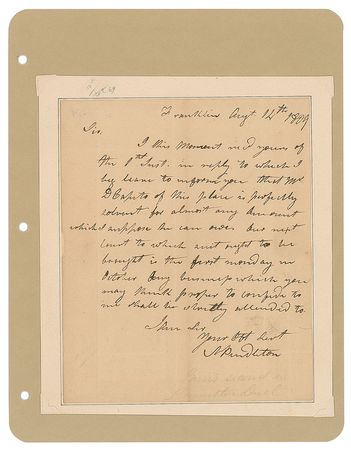 Franklin Augt 14th 1809
Sir.
I this Moment recd yours of
the 1st Inst. in reply to which I
beg leave to inform you that Mr
D Caputo of this place is perfectly
solvent for almost any amount
which I suppose he can owe. Our next
Court to which suit ought to be
brought is the first monday in
October Any business which you
may think proper to confide to
me shall be strictly attended to.
I am Sir
Your Obt Servt
N Pendleton